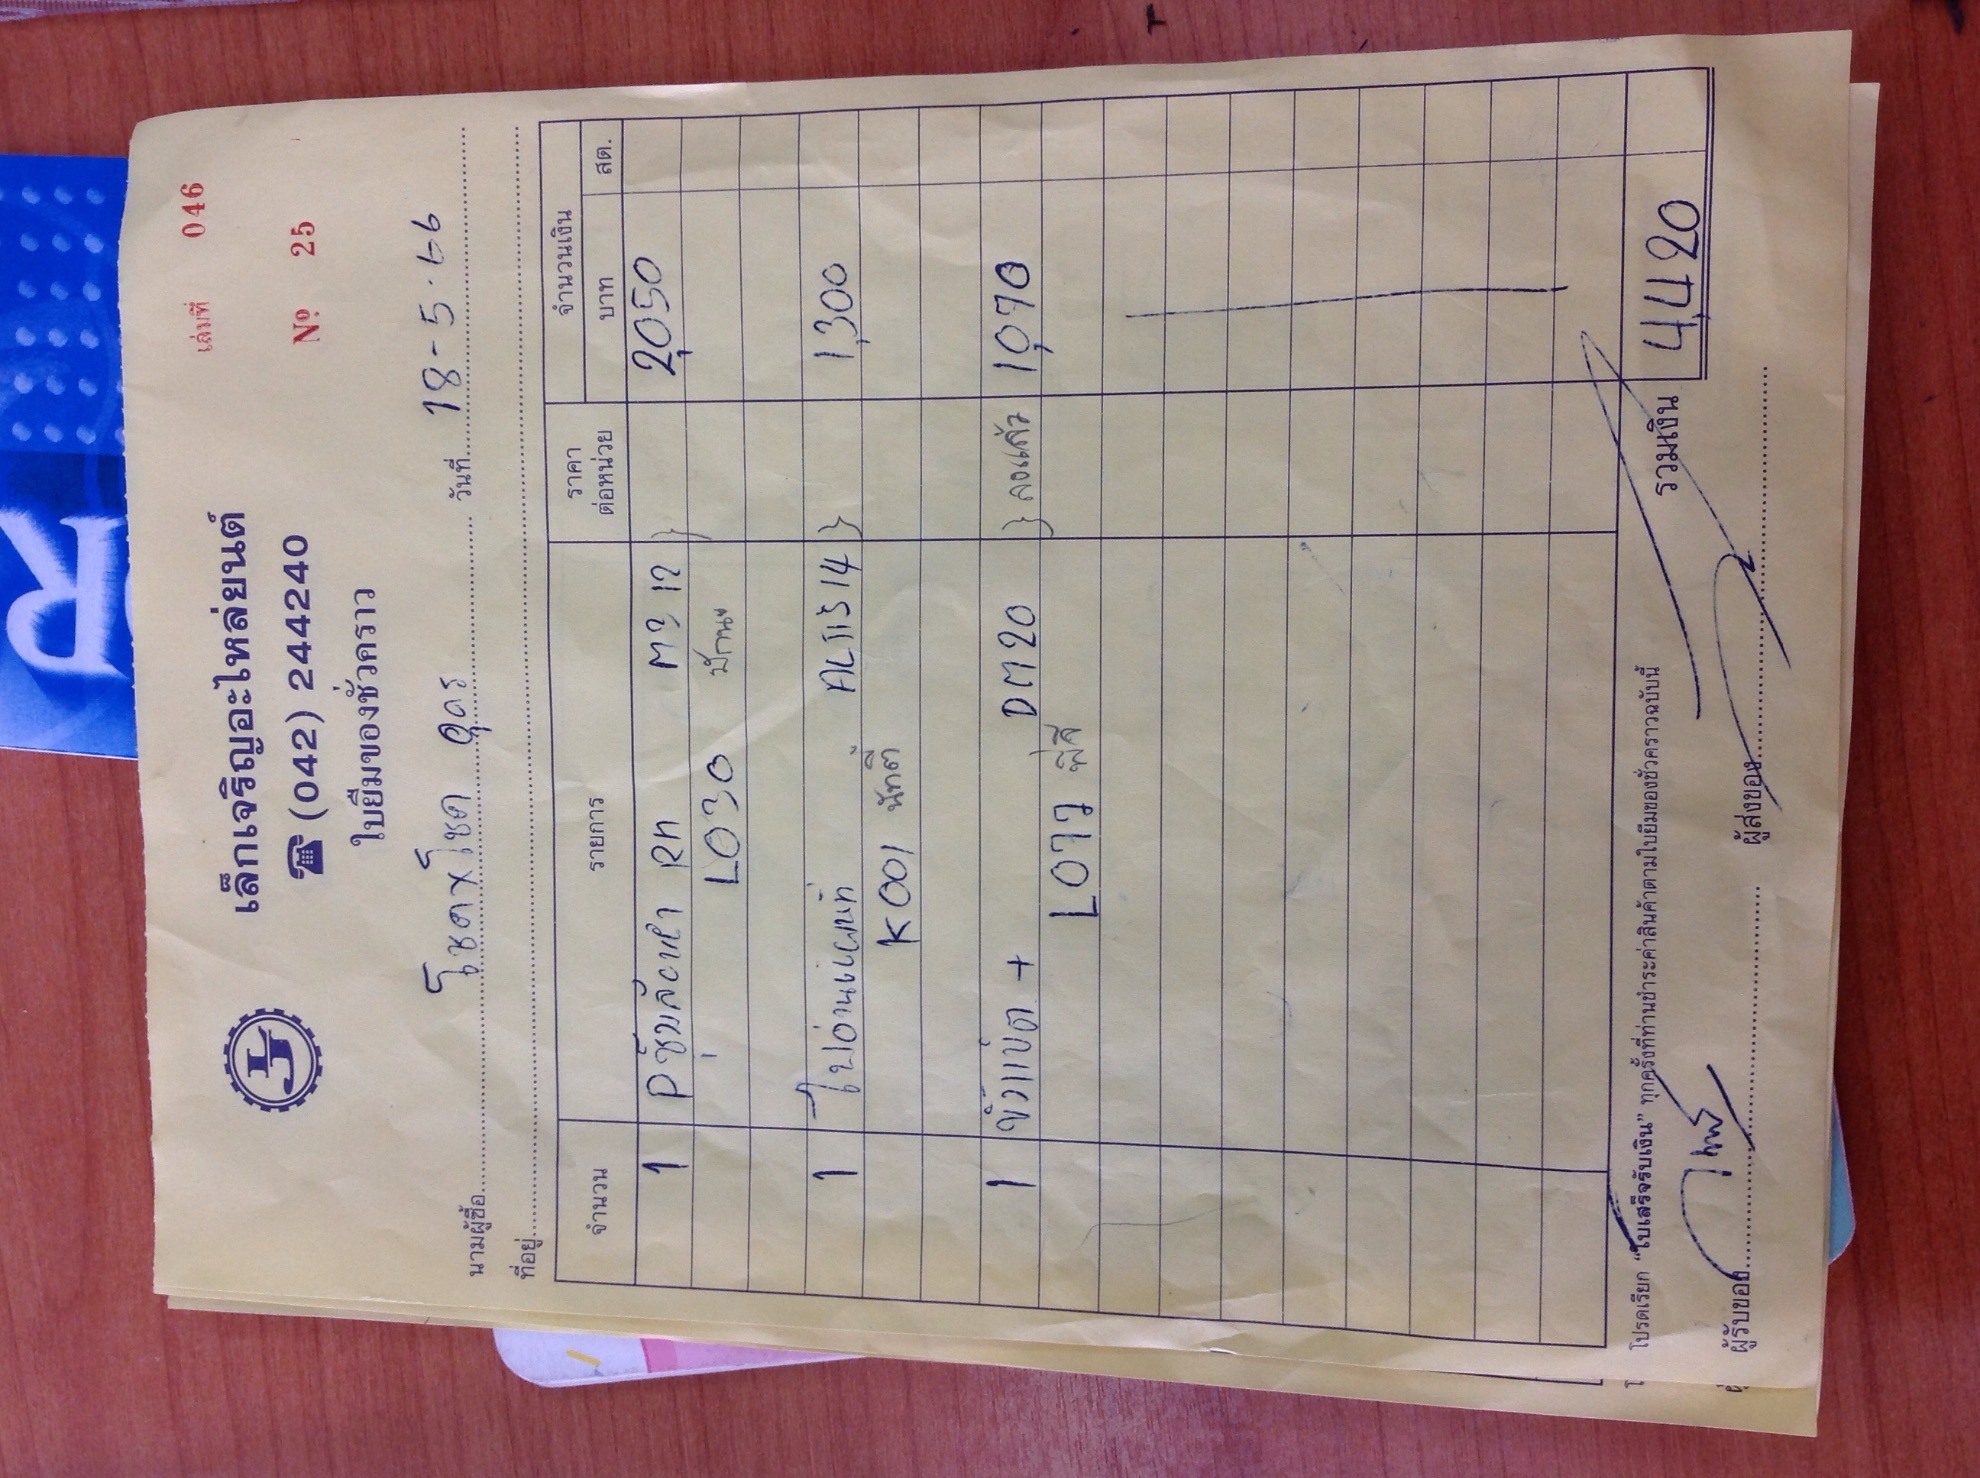 เล่มที่ 046
เล็กเจริญอะไหล่ยนต์
☎ (042) 244240
Nº 25
ใบยืมของชั่วคราว
นามผู้ซื้อ โชคxโชค อุดร วันที่ 18-5-66
ที่อยู่
จำนวน รายการ ราคาต่อหน่วย จำนวนเงิน
บาท สต.
1 RH M3 12 } 2,050
L030
1 ALTIS 14 } 1,300
K001
1 ขั้วแบ็ต + DM20 } ลงแล้ว 1,070
L077
รวมเงิน 4,420
โปรดเรียก "ใบเสร็จรับเงิน" ทุกครั้งที่ท่านชำระค่าสินค้าตามใบยืมของชั่วคราวฉบับนี้
ผู้รับของ ผู้ส่งของ